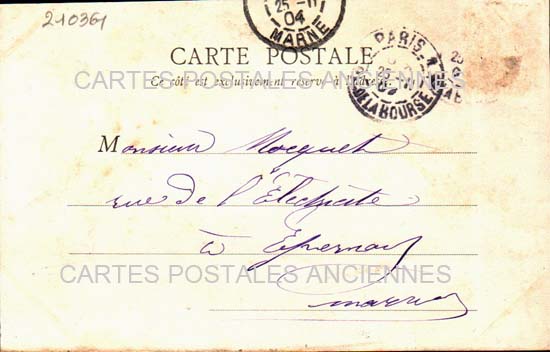 210361
25 - 11
04
MARNE
PARIS
25
DE LA BOURSE
CARTE POSTALE
CARTES POSTALES ANCIENNES
Ce côté est exclusivement réservé à l'adresse
Monsieur Mocquet
rue de l'Électricité
à Épernay
CARTES POSTALES ANCIENNES
Marne